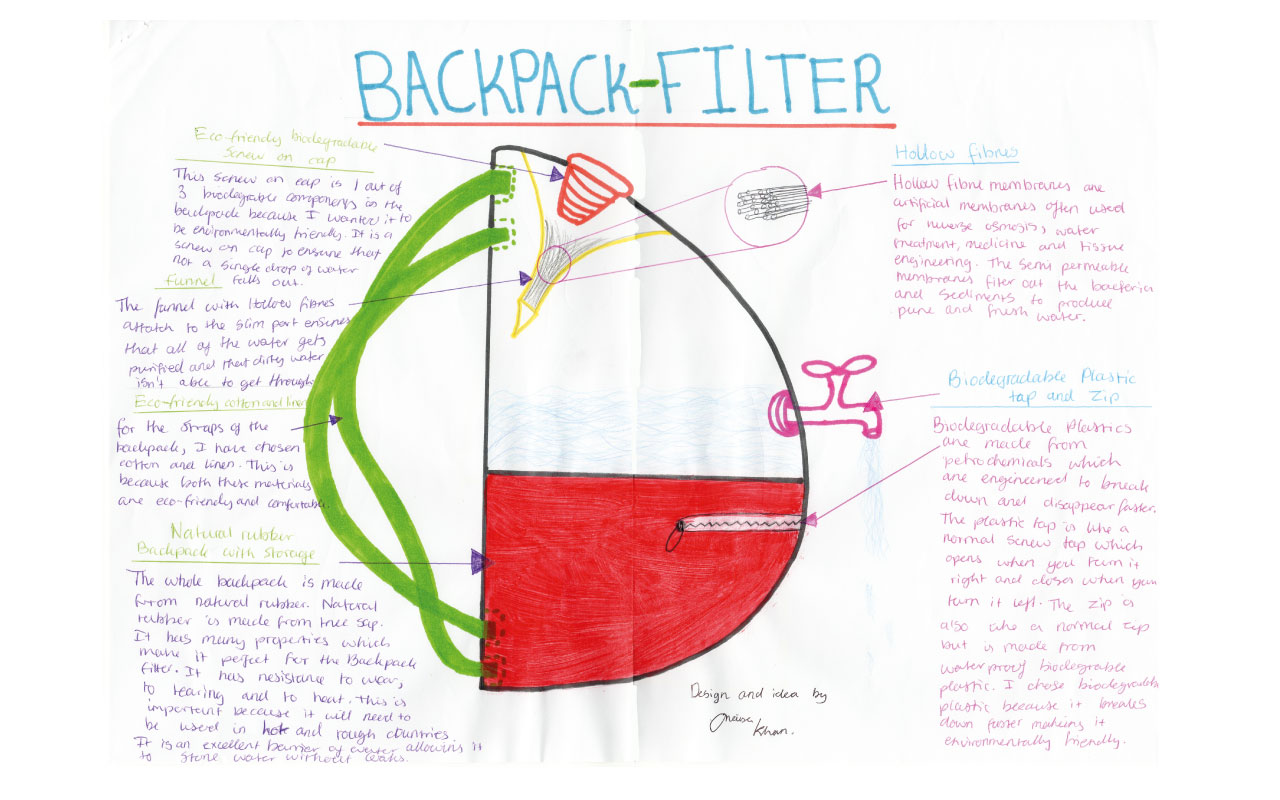 BACKPACK-FILTER
Eco-friendly biodegradable
screw on cap
This screw on cap is 1 out of
3 biodegrable components in the
backpack because I wanted it to
be environmentally friendly. It is a
screw on cap to ensure that
not a single drop of water
falls out.
funnel
The funnel with Hollow fibres
attatch to the slim part ensures
that all of the water gets
purified and that dirty water
isn't able to get through.
Eco-friendly cotton and linen
for the straps of the
backpack, I have chosen
cotton and linen. This is
because both these materials
are eco-friendly and comfortable.
Natural rubber
Backpack with storage
The whole backpack is made
from natural rubber. Natural
rubber is made from tree sap.
It has many properties which
make it perfect for the Backpack
filter. It has resistance to wear,
to tearing and to heat. This is
important because it will need to
be used in hot and rough countries.
It is an excellent barrier of water allowing it
to store water without leaks.
Hollow fibres
Hollow fibre membranes are
artificial membranes often used
for reverse osmosis, water
treatment, medicine and tissue
engineering. The semi permeable
membranes filter out the bacteria
and sediments to produce
pure and fresh water.
Biodegradable Plastic
tap and Zip
Biodegradable Plastics
are made from
petrochemicals which
are engineered to break
down and disappear faster.
The plastic tap is like a
normal screw tap which
opens when you turn it
right and closes when you
turn it left. The zip is
also like a normal zip
but is made from
waterproof biodegrable
plastic. I chose biodegradable
plastic because it breaks
down faster making it
environmentally friendly.
Design and idea by
Khan.